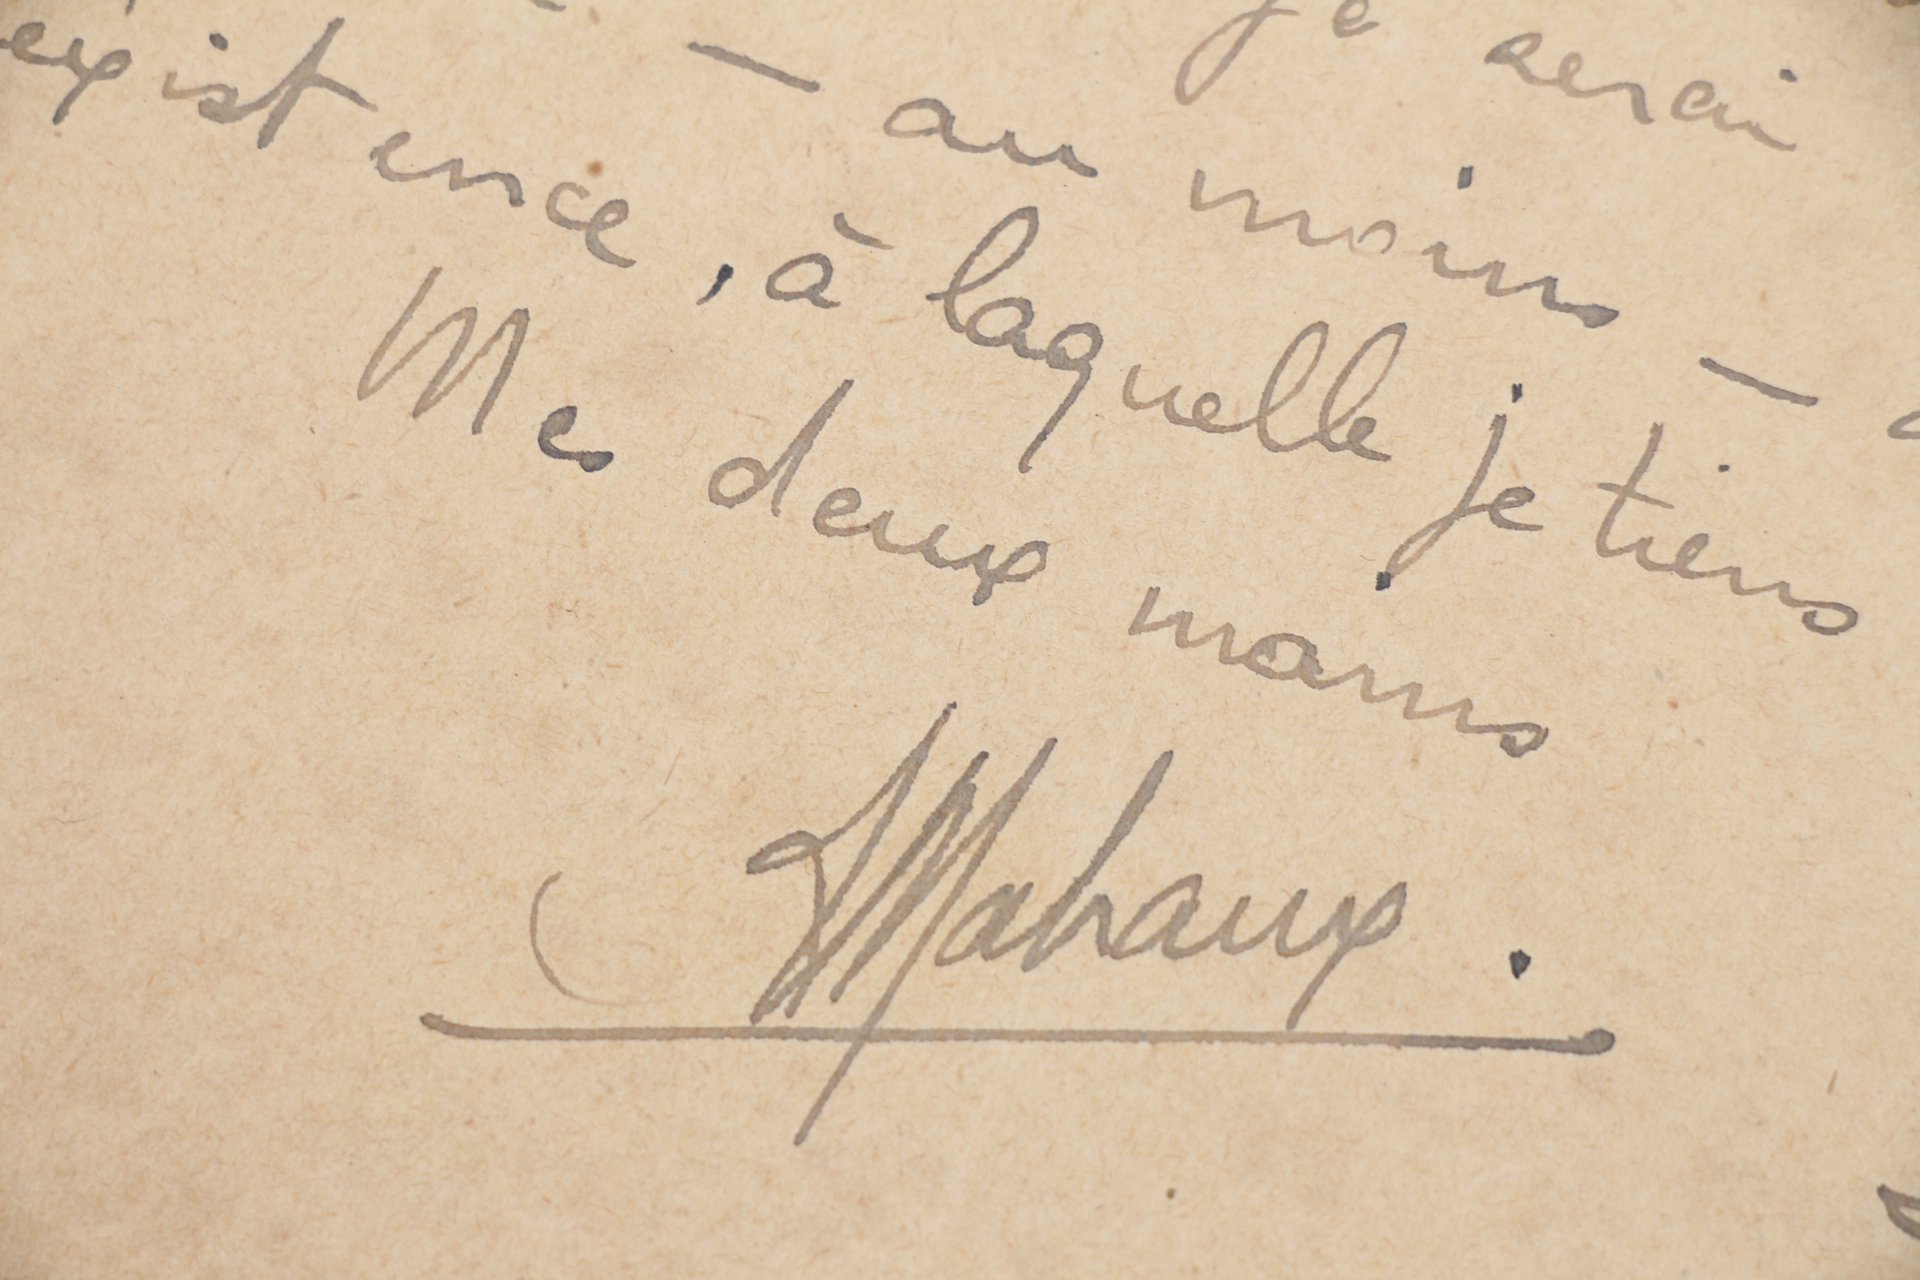 je serai
— au moins —
existence, à laquelle je tiens
Mes deux mains